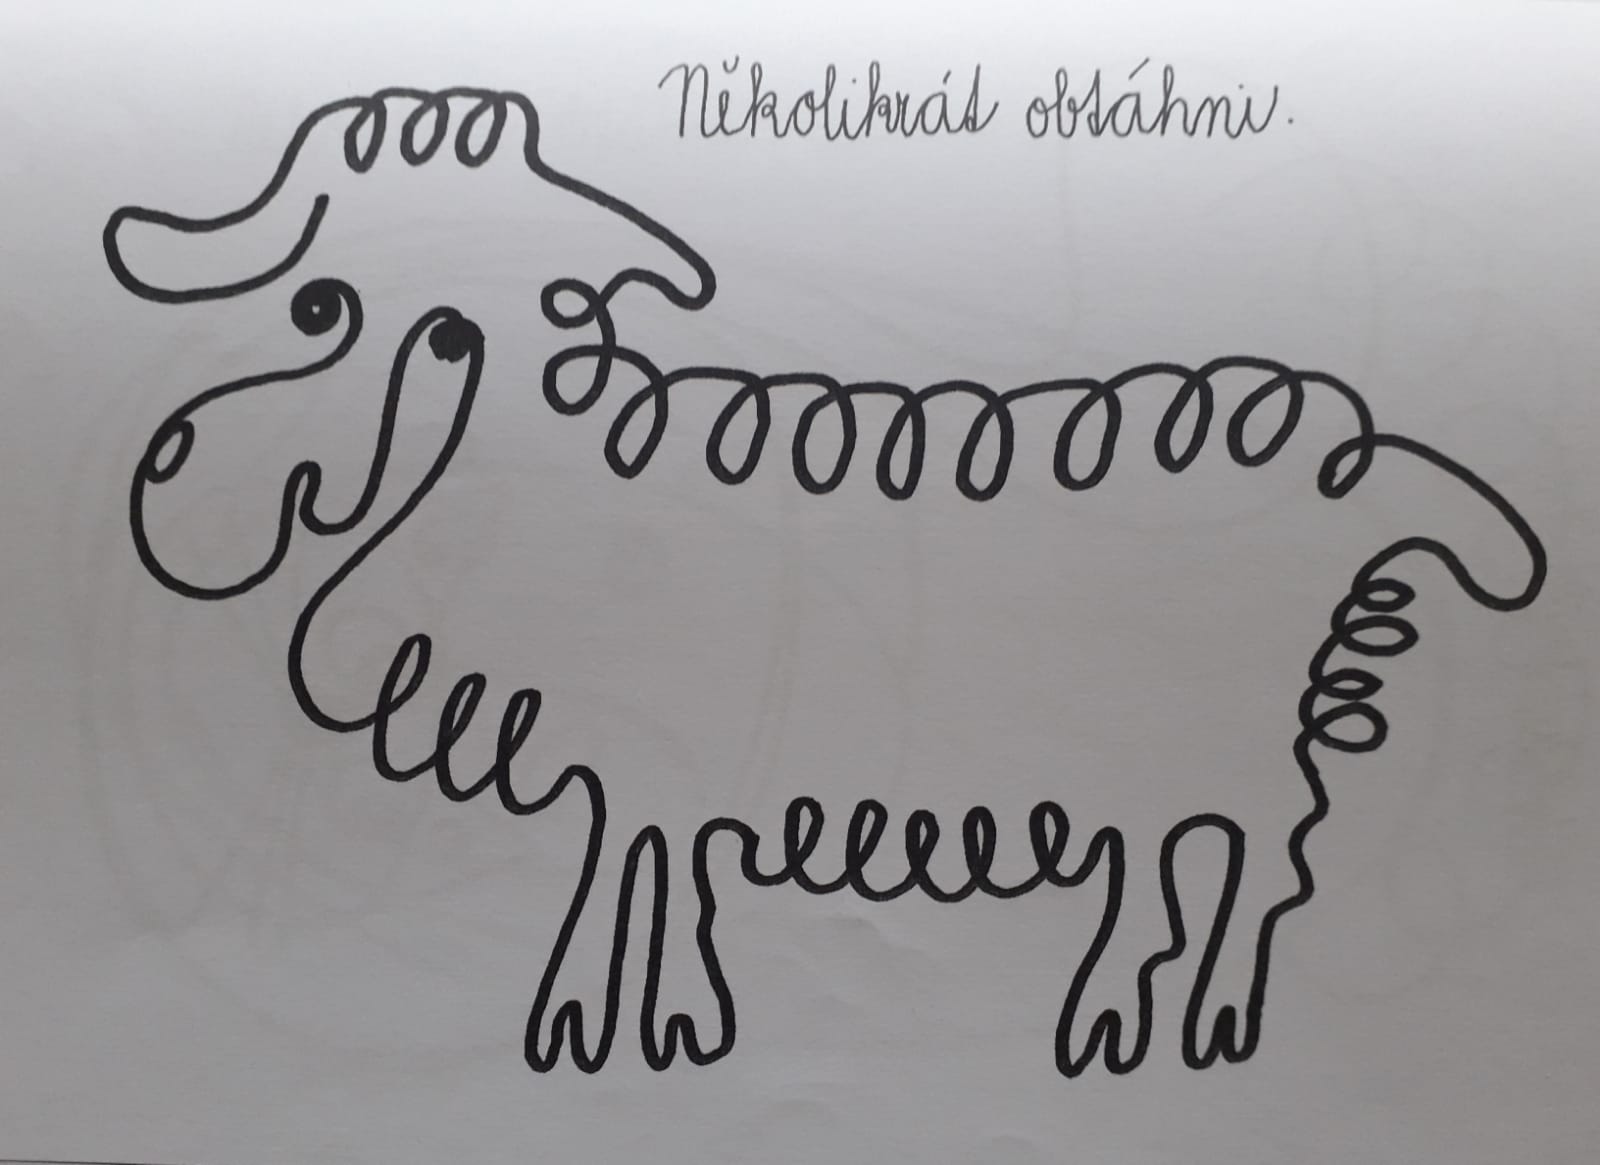 Několikrát obtáhni.